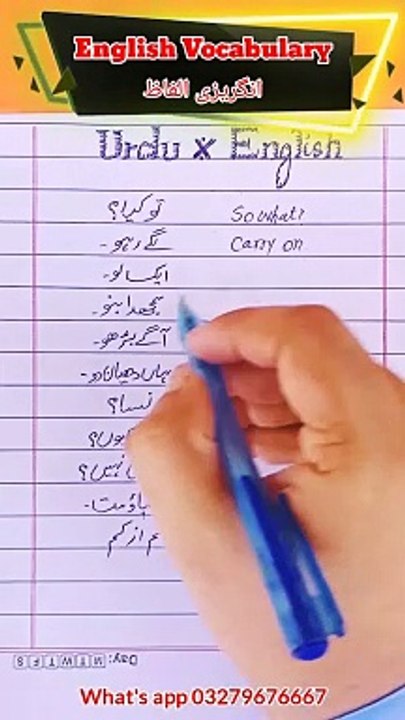 English Vocabulary
انگریزی الفاظ
Urdu x English
تو کیا؟ So what?
لگے رہو۔ Carry on
لو۔
سمجھدار بنو۔
آگے بڑھو۔
یہاں دھیان دو۔
نسا؟
نہیں؟
مت۔
م از کم
Day: M T W T F S
What's app 03279676667